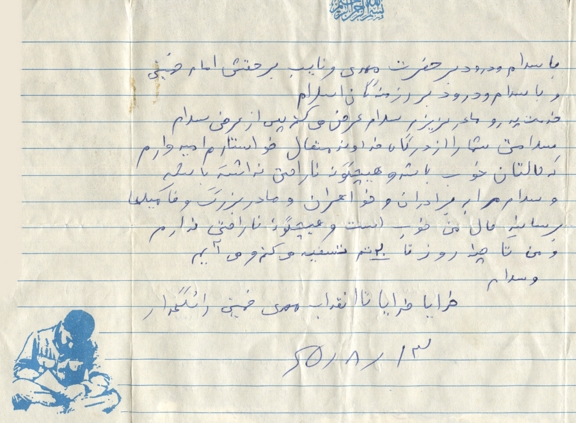 با سلام و درود بر حضرت مهدی و نایب برحقش امام خمینی
و با سلام و درود بر رزمندگان اسلام
خدمت پدر و مادر عزیزم سلام عرض می‌کنم پس از عرض سلام
سلامتی شما را از درگاه خداوند متعال خواستارم امیدوارم
که حالتان خوب باشد و هیچگونه ناراحتی نداشته باشید
و سلام مرا به برادران و خواهران و مادربزرگ و فامیلها
برسانید حال من خوب است و هیچگونه ناراحتی ندارم
و من تا چند روز تسفیه می‌کنم و می آیم
وسلام
خدایا خدایا تا انقلاب مهدی خمینی را نگهدار
65/8/13